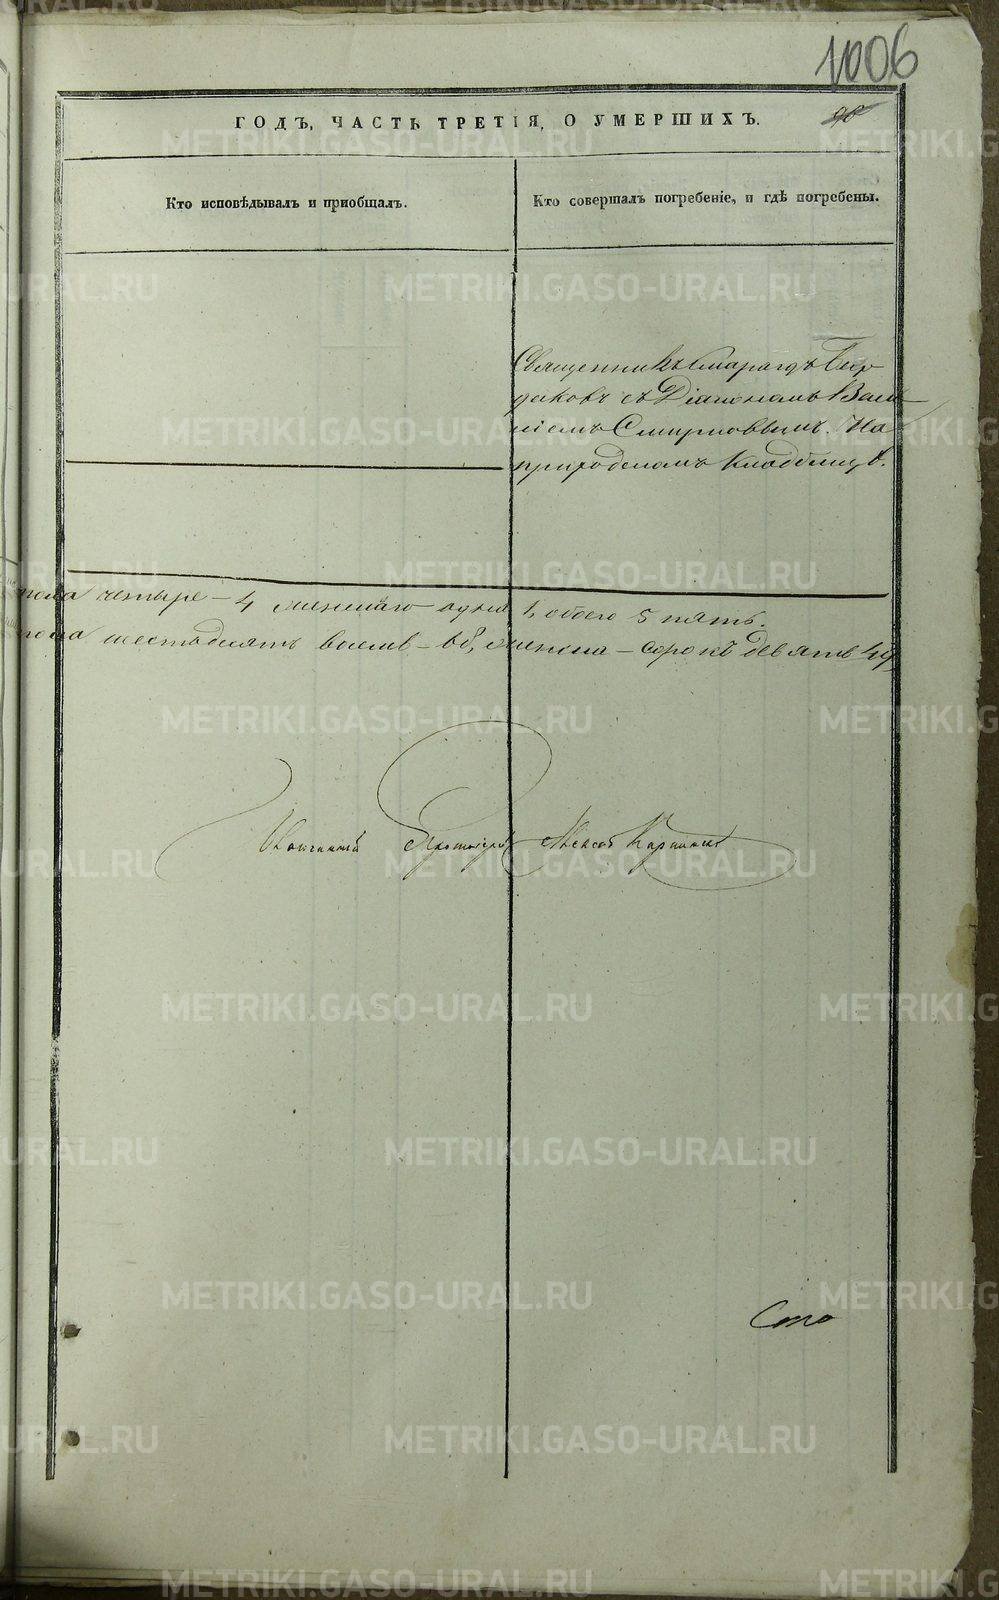 1006
ГОДЪ, ЧАСТЬ ТРЕТІЯ, О УМЕРШИХЪ.
90
Кто исповѣдывалъ и пріобщалъ.
Кто совершалъ погребеніе, и гдѣ погребены.
Священникъ Смарагдъ
с Діакономъ Васи
ліемъ Смирновымъ. На
приходскомъ кладбищѣ.
пола четыре – 4 женскаго одна 1, обоего 5 пять.
пола шестьдесятъ восемь – 68, женска – сорокъ девять 49
Протоіерей Алексей
Сто
METRIKI.GASO-URAL.RU